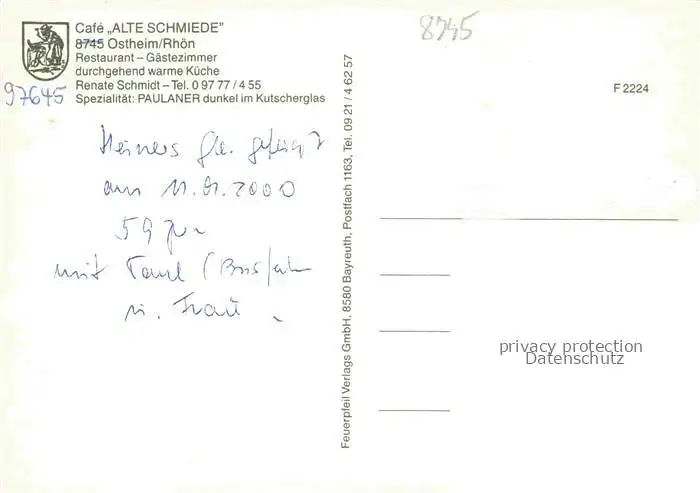 Café „ALTE SCHMIEDE"
8745 Ostheim/Rhön
Restaurant – Gästezimmer
durchgehend warme Küche
Renate Schmidt – Tel. 0 97 77 / 4 55
Spezialität: PAULANER dunkel im Kutscherglas
97645
8745
F 2224
Heiners
am 11. 2000
59
mit
u. Frau
Feuerpfeil Verlags GmbH, 8580 Bayreuth, Postfach 1163, Tel. 09 21 / 4 62 57
privacy protection
Datenschutz